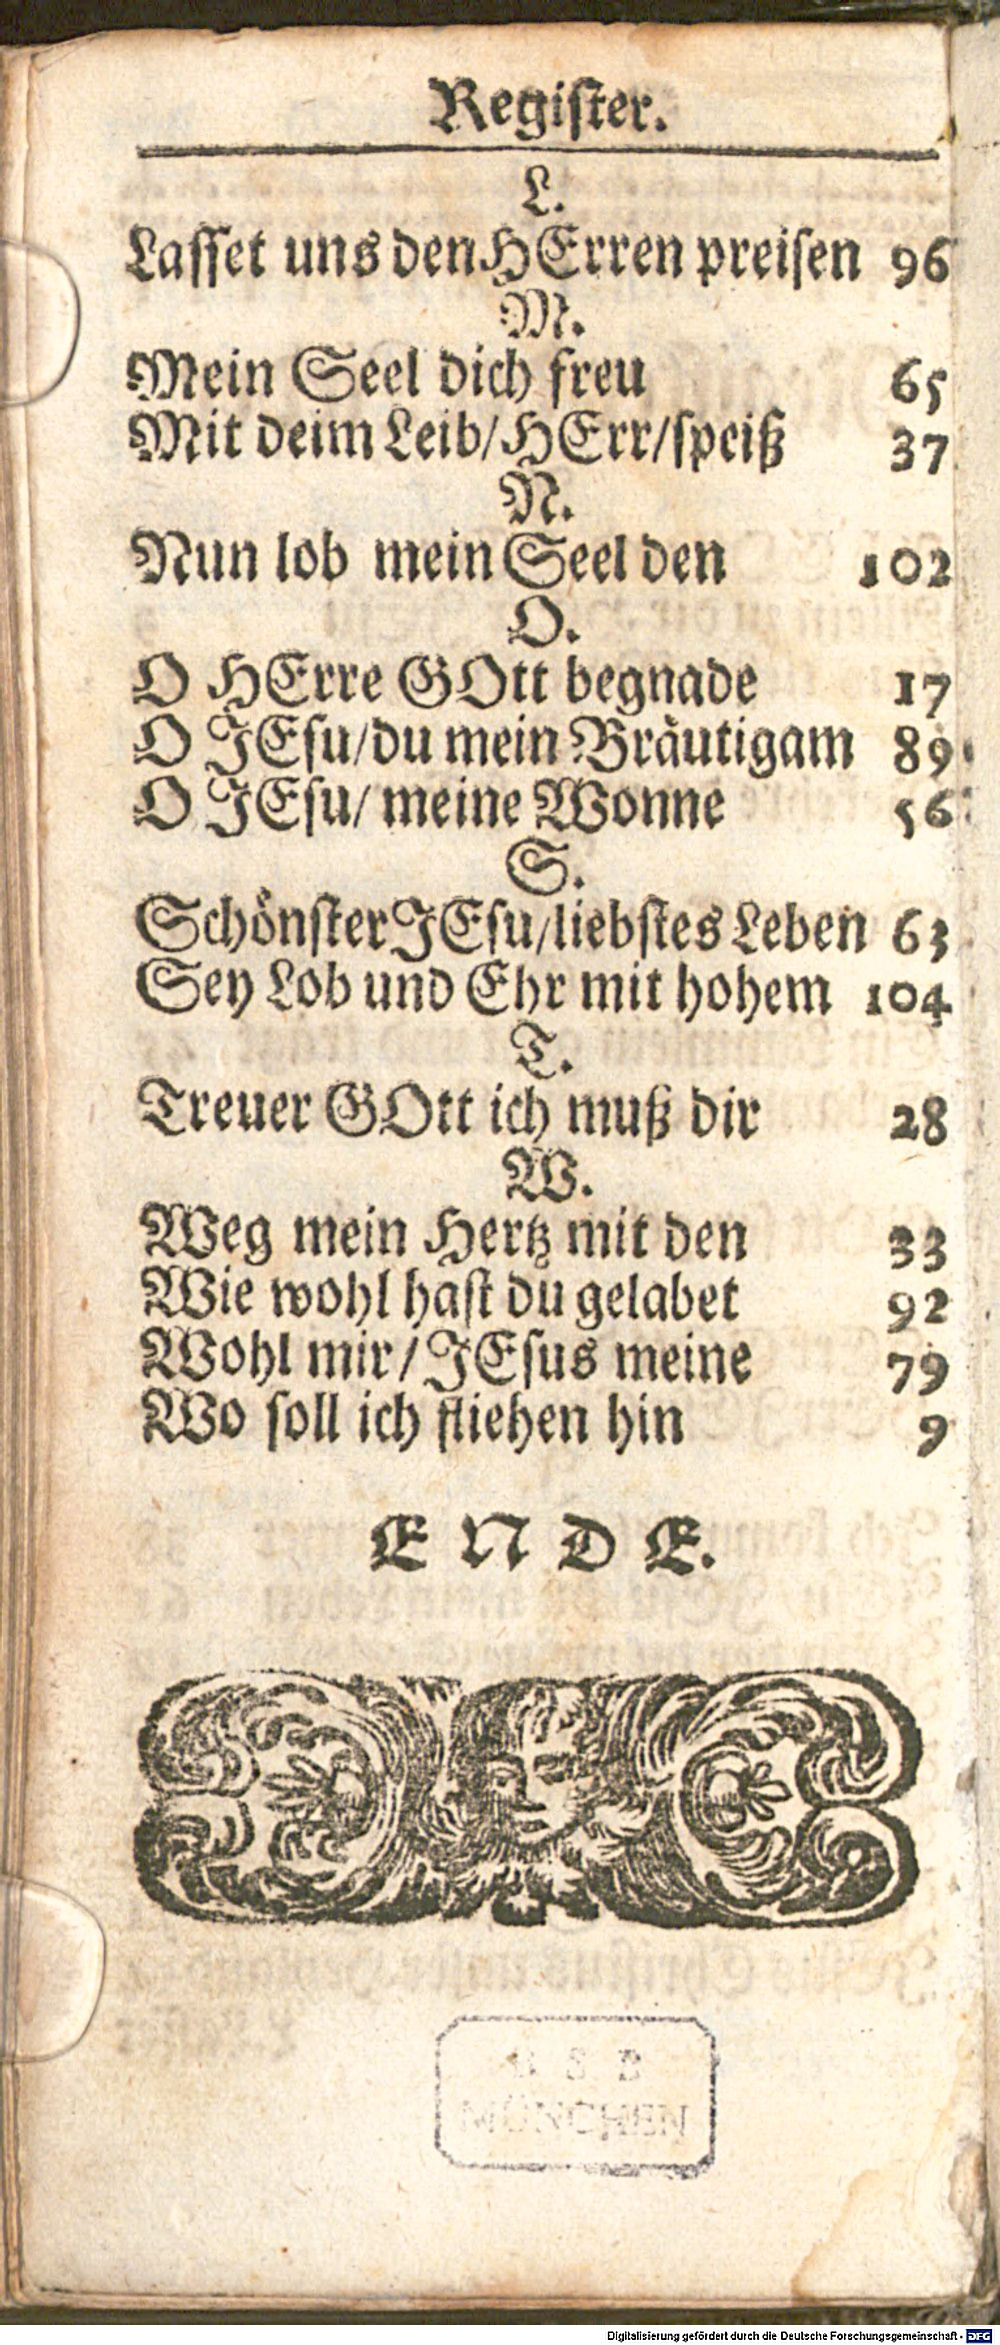 Regiſter.
L.
Laſſet uns den HErren preiſen 96
M.
Mein Seel dich freu 65
Mit deim Leib/HErr/ſpeiß 37
N.
Nun lob mein Seel den 102
O.
O HErre GOtt begnade 17
O JEſu/du mein Bräutigam 89
O JEſu/ meine Wonne 56
S.
Schönſter JEſu/liebſtes Leben 63
Sey Lob und Ehr mit hohem 104
T.
Treuer GOtt ich muß dir 28
W.
Weg mein Hertz mit den 33
Wie wohl haſt du gelabet 92
Wohl mir/ JEſus meine 79
Wo ſoll ich fliehen hin 9
E N D E.
B S B
MÜNCHEN
Digitalisierung gefördert durch die Deutsche Forschungsgemeinschaft - DFG